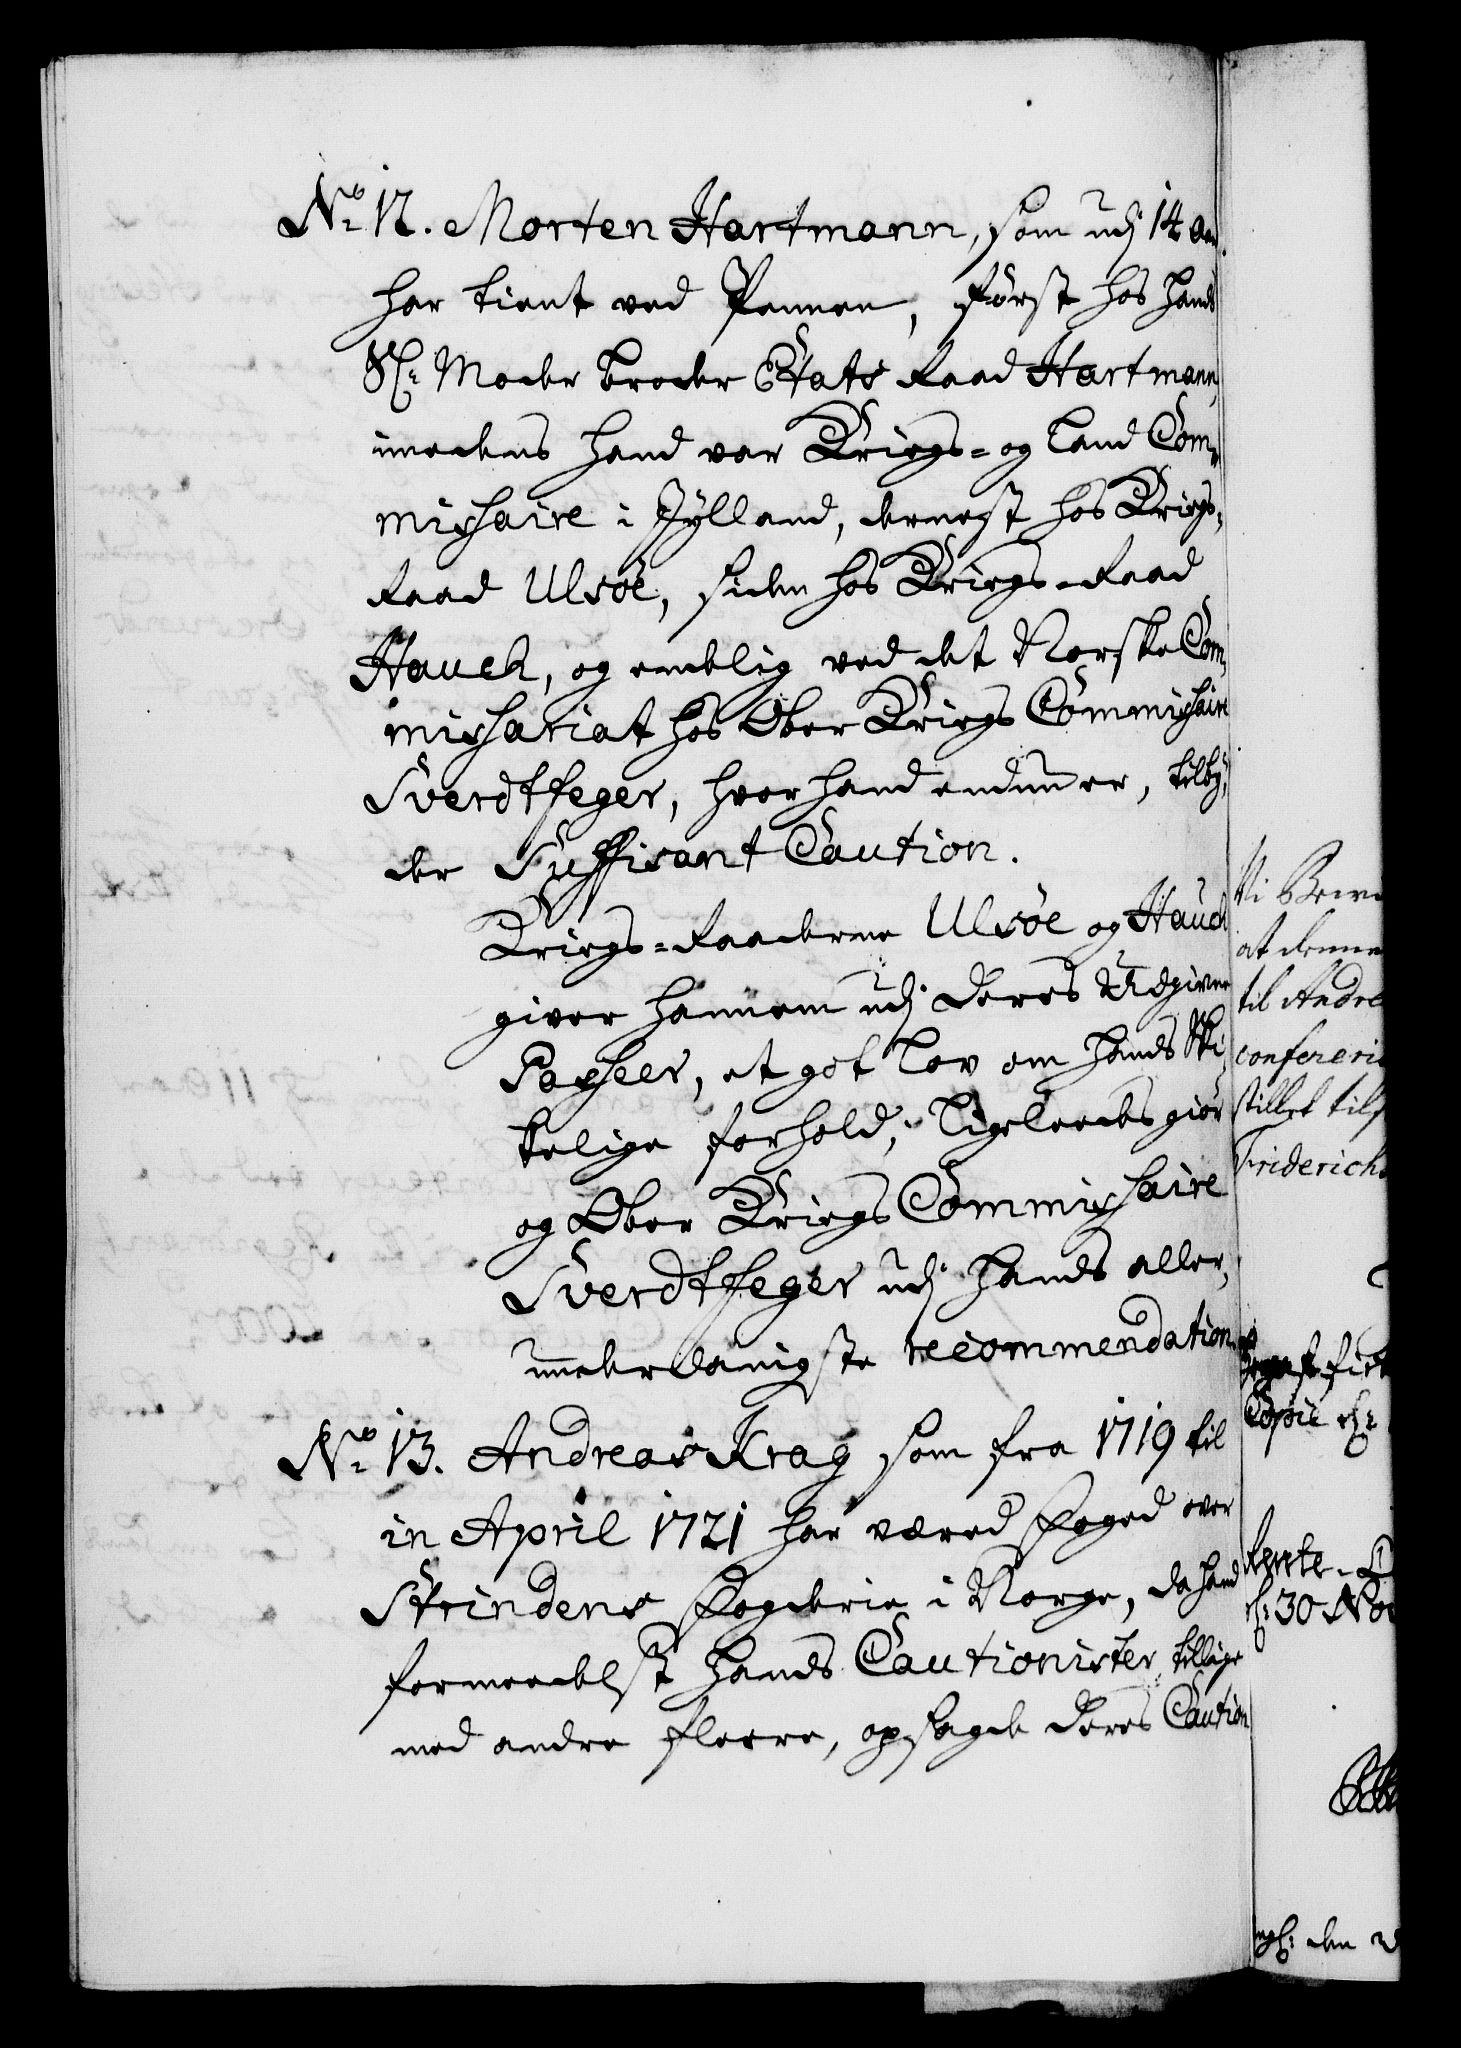 No 12. Morten Hartmann, som udj 14 Aar
har tient ved Pennen, først hos hands
Sl: Moder broder Etats Raad Hartmann,
imedens hand var Kriegs- og Land Com-
missaire i Jylland, dernest hos Kriegs-
Raad Ulsöe, siden hos Kriegs-Raad
Hauch, og endelig ved det Norske Com-
missariat hos Ober Kriegs Commissaire
Sverdtfeger, hvor hand endnu er, tilby-
der Suffisant Caution.
Kriegs-Raaderne Ulsöe og Hauch
giver hannem udj deres Udgivne
Passeer, et got Lov om hands Ski-
kelige forhold, ligeleedes giør
og Ober Kriegs Commissaire
Sverdtfeger udj hands aller-
underdanigste recommendation.
No 13. Andreas Krag som fra 1719 til
in April 1721 har været Foged over
Strindens Fogderie i Norge, da hand
formeedelst hands Cautionister, tillige
med andre fleere, opsagde deres Caution
at denne
til Andre
confereri
stillet til
Friderich
Copie
30 Nov
den